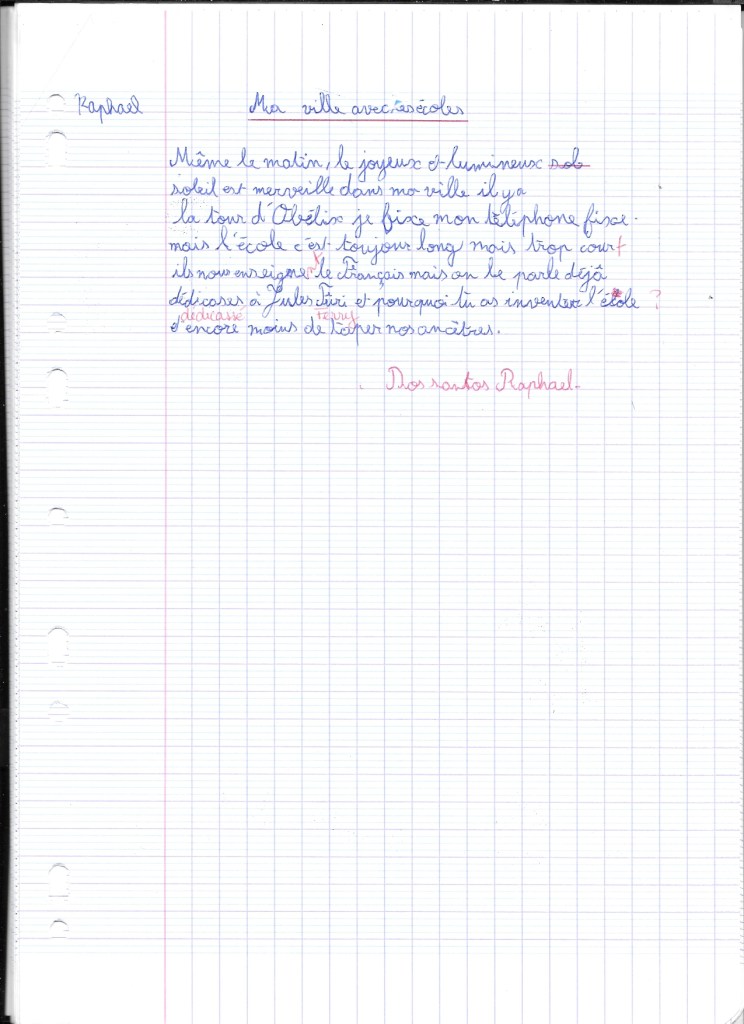 Raphael
Ma ville avec ses écoles
Même le matin, le joyeux et lumineux
soleil est merveille dans ma ville il y a
la tour d'Obélix je fixe mon téléphone fixe.
mais l'école c'est toujour long mais trop court
ils nous enseigne le Français mais on le parle déjà
dédicases à Jules Firi et pourquoi tu as inventer l'école ?
dédicassé Ferry
d'encore moins de taper nos ancêtres.
Dos santos Raphael